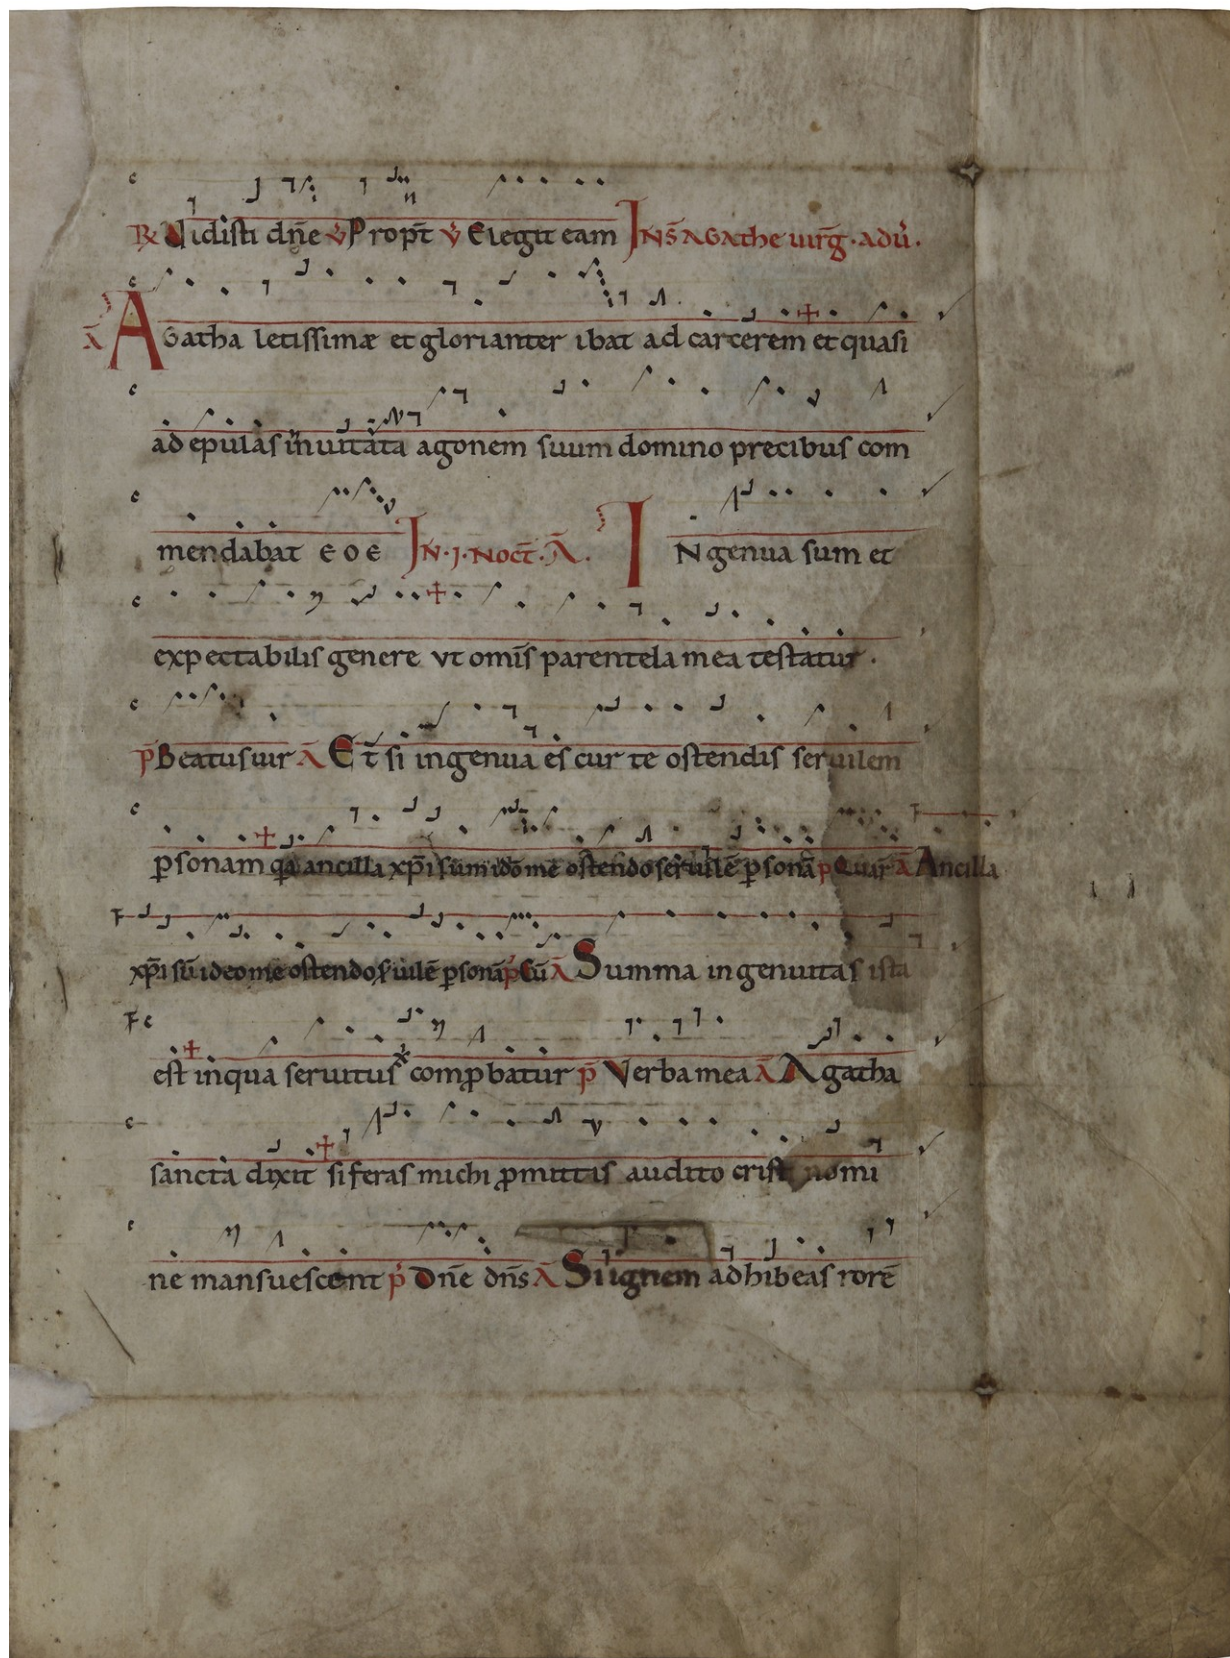 ℟ Uidisti dn̄e ℣ Propt̄ ℣ Elegit eam IN S̄ AGATHE uirḡ. adu᷒.
Ā AGatha letissimæ et glorianter ibat ad carcerem et quasi
ad epulas inuitata agonem suum domino precibus com
mendabat E O E IN .I. NOCT̄. Ā. INgenua sum et
expectabilis genere vt om̄is parentela mea testatur.
p̄ Beatus uir Ā Et̄ si ingenua es cur te ostendis seruilem
ꝑsonam ancilla xp̄i sum ido me ostendo seruilē ꝑsonā p Quar̄ Ā Ancilla
xp̄i sū ideo me ostendo s̄uilē ꝑsonā p̄ Cū Ā Summa ingenuitas ista
est in qua seruitus xp̄i comꝓbatur p̄ Verba mea Ā Agatha
sancta dixit si feras michi ꝓmittis audito cristi nomi
ne mansuescent p̄ Dn̄e dn̄s Ā Si ignem adhibeas rorē